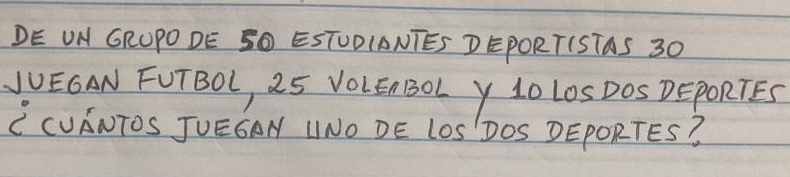 DE UN GRUPO DE 50 ESTUDIANTES DEPORTISTAS 30
JUEGAN FUTBOL, 25 VOLEIBOL Y 10 LOS DOS DEPORTES
¿CUÁNTOS JUEGAN UNO DE LOS DOS DEPORTES?